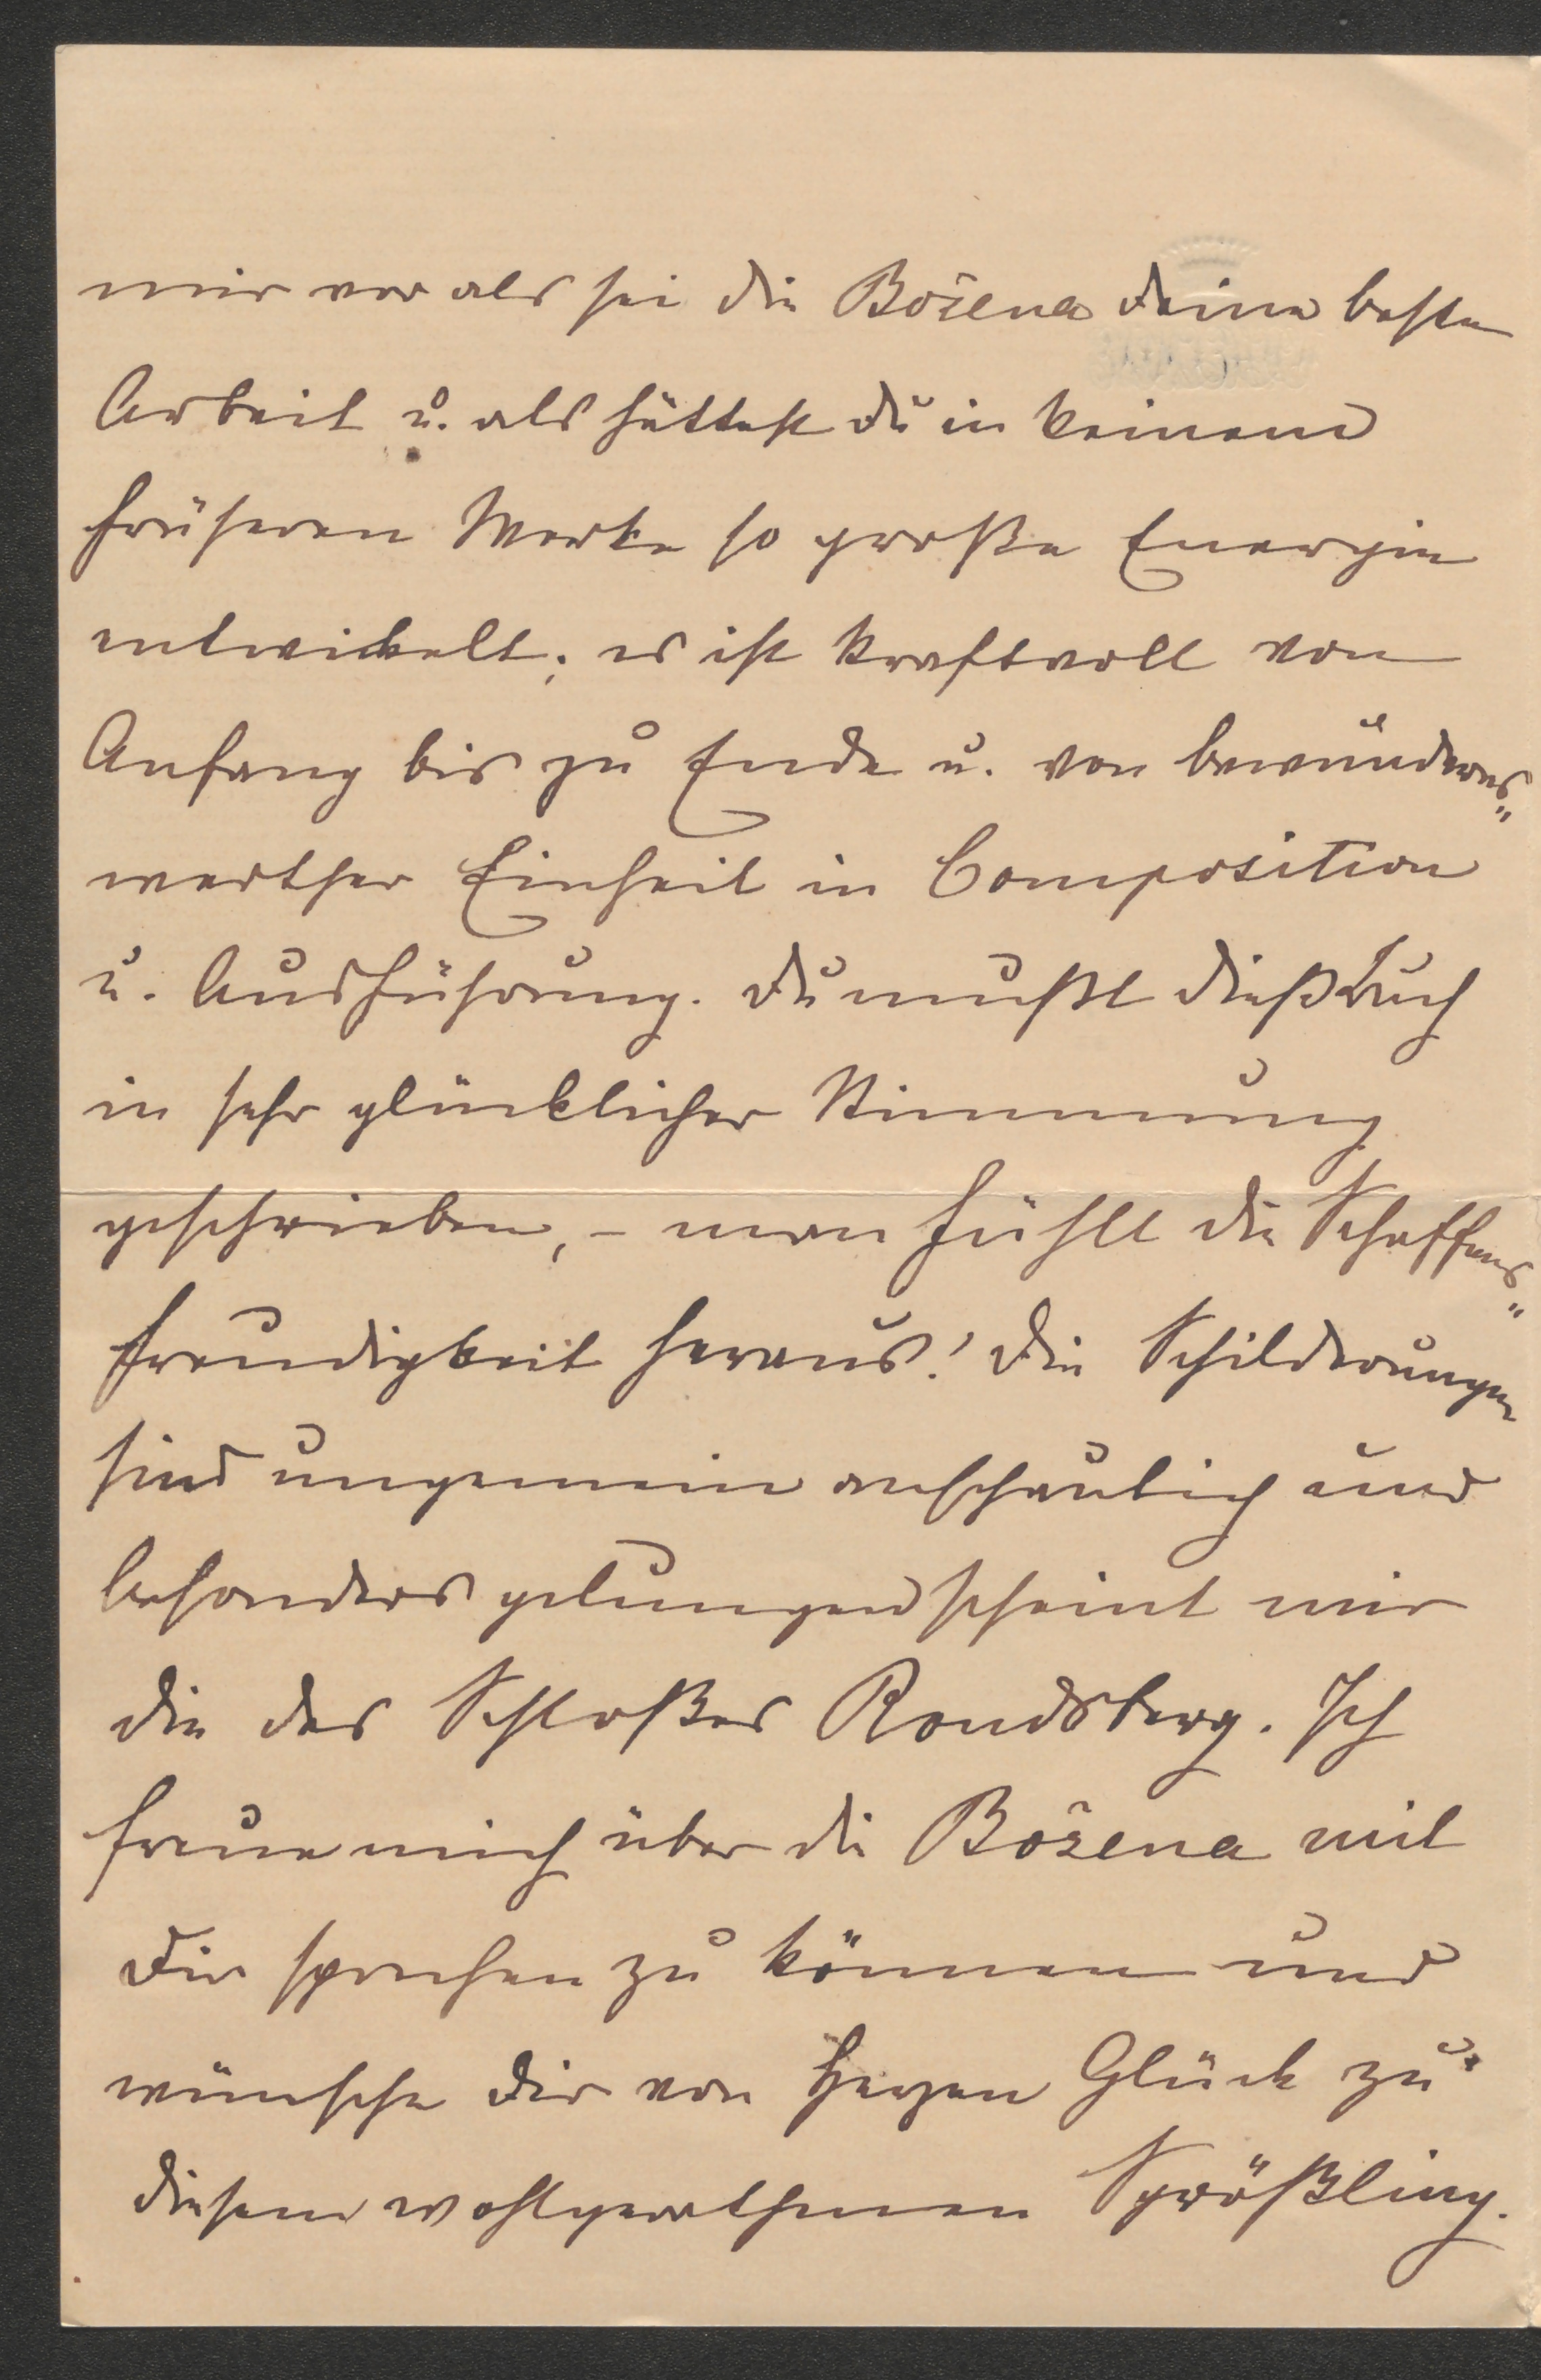 mir vor als sei die Božena deine beste
Arbeit u. als hättest du in keinem
früheren Werke so große Energie
entwickelt; es ist kraftvoll von
Anfang bis zu Ende u. von bewunderns„
werther Einheit in Composition
u. Ausführung. Du mußt dieß Buch
in sehr glücklicher Stimmung
geschrieben, – man fühlt die Schaffens„
freudigkeit heraus! Die Schilderungen
sind ungemein anschaulich und
besonders gelungen scheint mir
die des Schloßes Rondsberg. Ich
freue mich über die Božena mit
Dir sprechen zu können und
wünsche dir von Herzen Glück zu
diesem wohlgerathenen Sprößling.